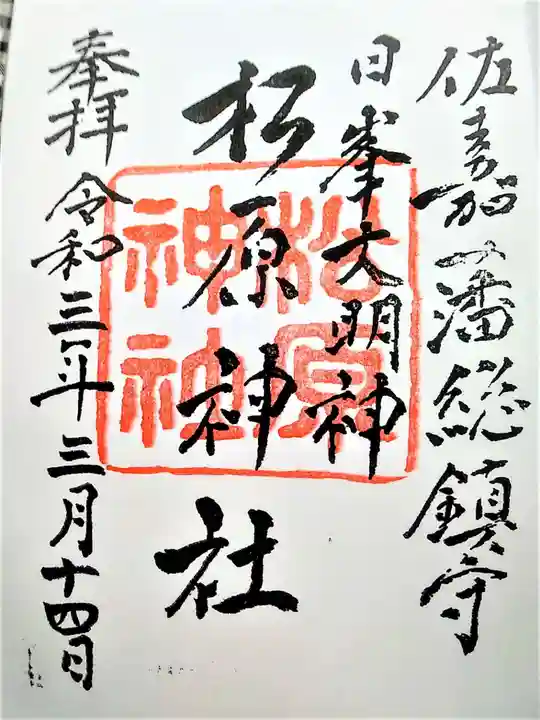 佐嘉藩総鎮守
日峯大明神
松原神社
奉拝 令和三年三月十四日
松原
神社